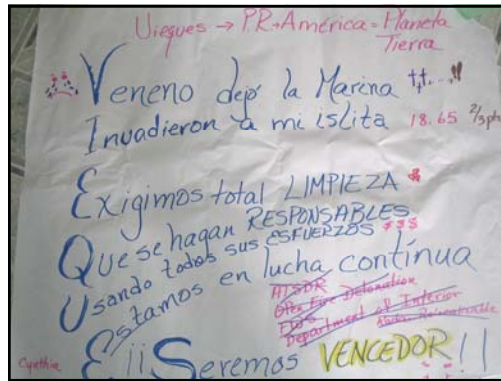 Vieques → PR → América = Planeta
Tierra
Veneno dejó la Marina ††...!!
Invadieron a mi islita 18.65 2/3 ph
Exigimos total LIMPIEZA
Que se hagan RESPONSABLES
Usando todos sus ESFUERZOS $$$
Estamos en lucha contínua
ATSDR
Open Fire Detonation
Department of Interior
E ¡¡Seremos VENCEDOR!!
Cynthia